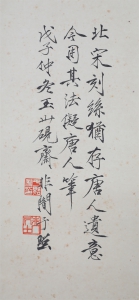 北宋刻絲猶存唐人遺意
今用其法擬唐人筆
戊子仲冬玉山硯齋非闇